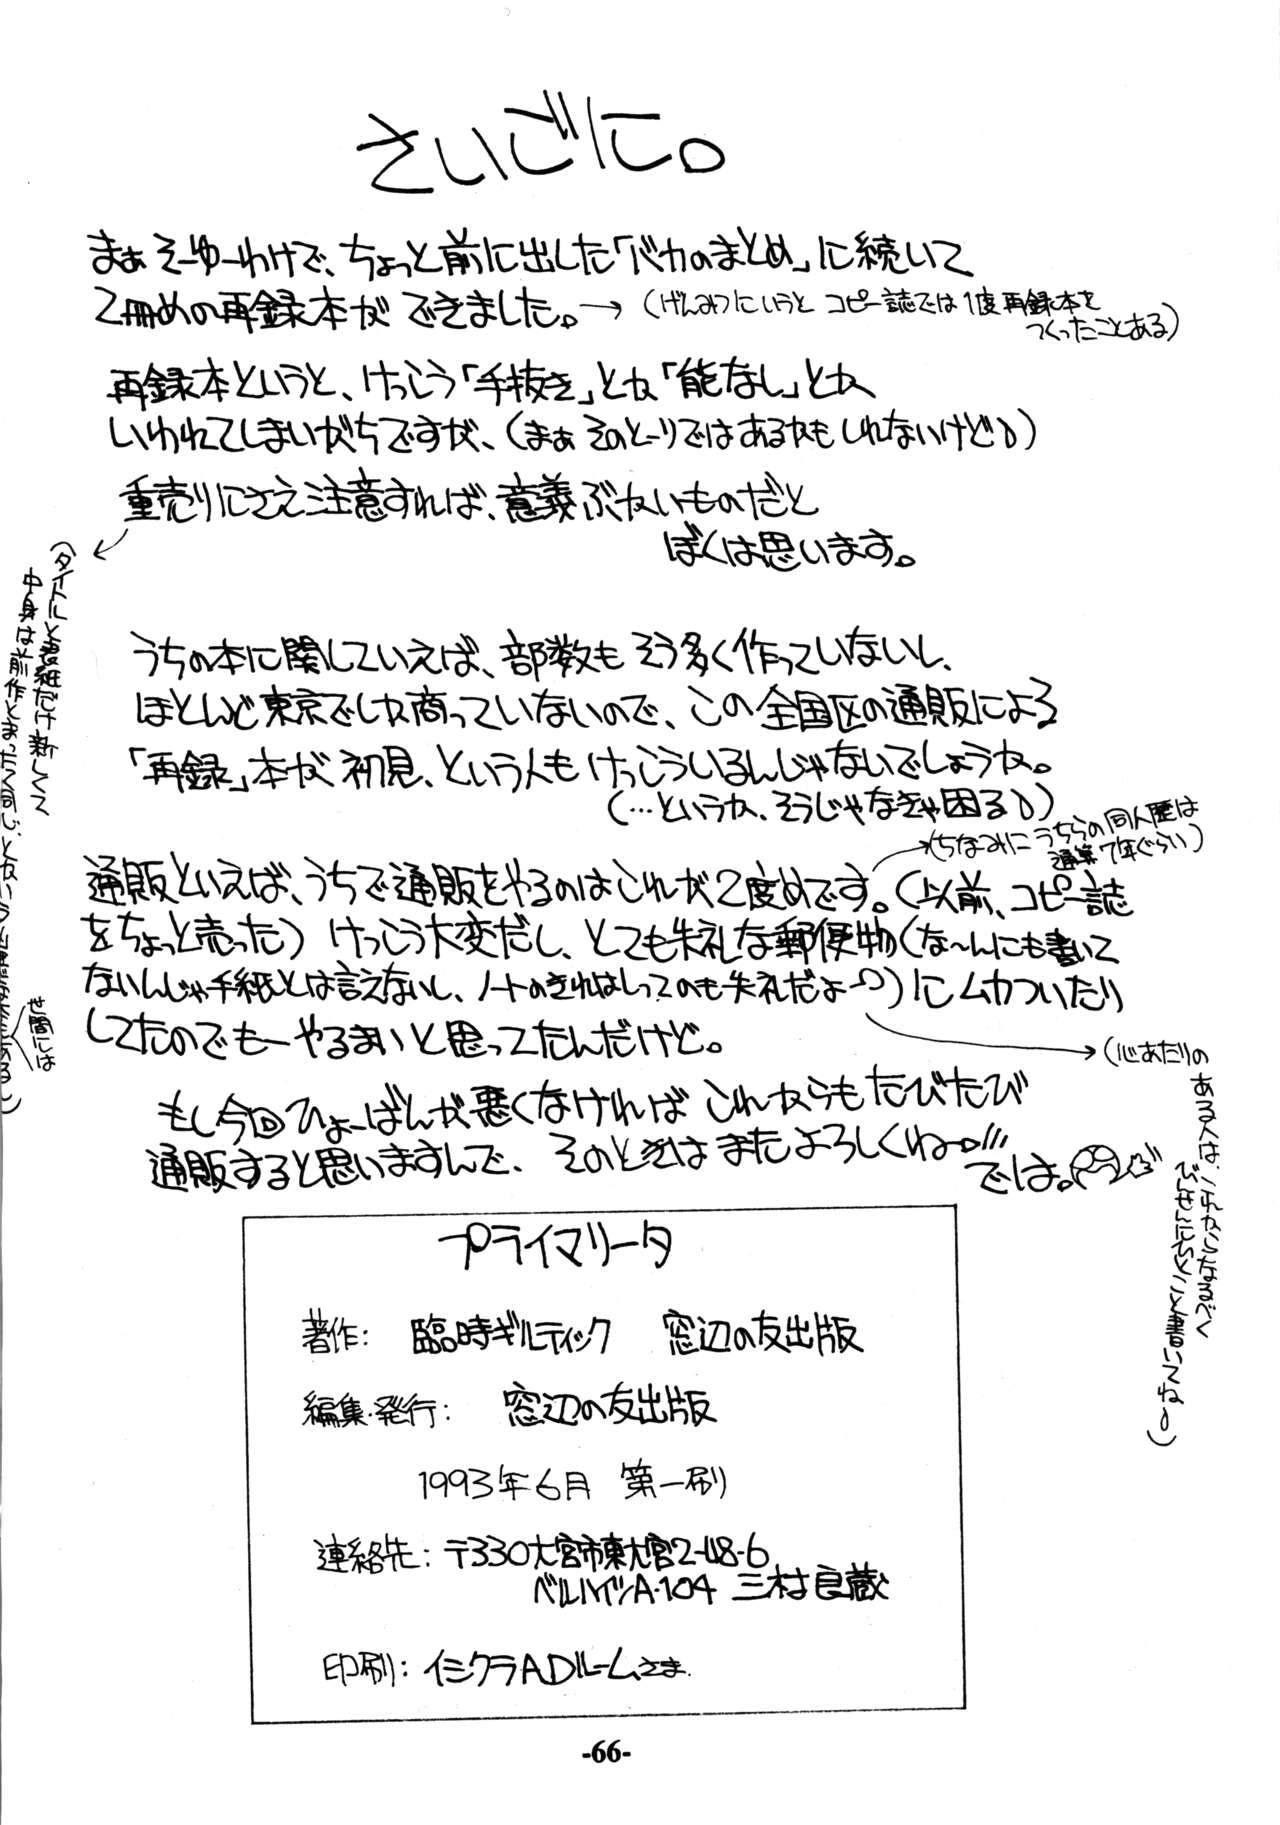 さいごに。
まぁそーゆーわけで、ちょっと前に出した「バカのまとめ」に続いて
2冊めの再録本ができました。→(げんみつにいうと コピー誌では1度再録本を
つくったことある)
再録本というと、けっこう「手抜き」とか「能なし」とか
いわれてしまいがちですが、(まぁ そのとーりではあるかもしれないけど)
重売りにさえ注意すれば、意義ぶかいものだと
ぼくは思います。
(タイトルと表紙だけ新しくて
中身は前作とまったく同じ、とかいう
世間には
うちの本に関していえば、部数もそう多く作っていないし、
ほとんど東京でしか商っていないので、この全国区の通販による
「再録」本が初見、という人もけっこういるんじゃないでしょうか。
(…というか、そうじゃなきゃ困る)
(ちなみにうちらの同人歴は
通算7年ぐらい)
通販といえば、うちで通販をやるのはこれが2度めです。(以前、コピー誌
をちょっと売った)けっこう大変だし、とても失礼な郵便物(な〜んにも書いて
ないんじゃ手紙とは言えないし、ノートのきれはしってのも失礼だよー)にムカついたり
してたのでもーやるまいと思ってたんだけど。
(心あたりの
ある人は、これからなるべく
びんせんにひとこと書いてね)
もし今回ひょーばんが悪くなければ これからもたびたび
通販すると思いますんで、そのときはまたよろしくねー。
では。
プライマリータ
著作: 臨時ギルティック 窓辺の友出版
編集・発行: 窓辺の友出版
1993年6月 第一刷
連絡先: 〒330大宮市東大宮2-48-6
ベルハイツA-104 三村良蔵
印刷: イシクラADルームさま.
-66-